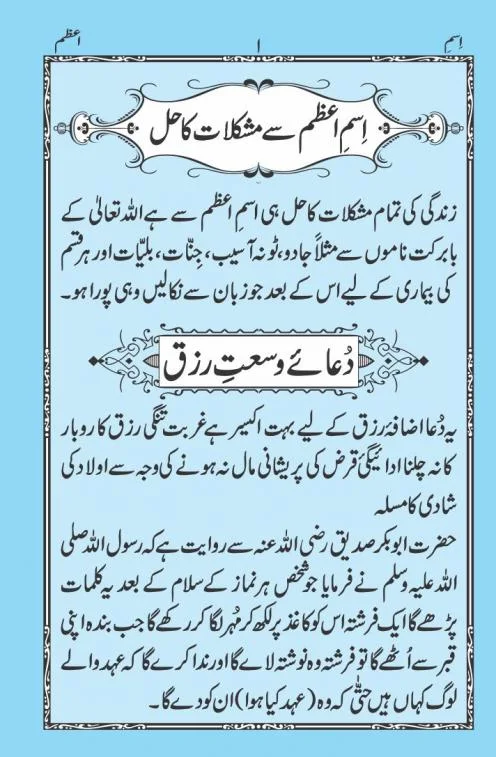 اِسمِ ۱ اعظم
اِسمِ اعظم سے مشکلات کا حل
زندگی کی تمام مشکلات کا حل ہی اسمِ اعظم سے ہے اللہ تعالیٰ کے
بابرکت ناموں سے مثلاً جادو، ٹونہ آسیب، جِنّات، بلیّات اور ہر قسم
کی بیماری کے لیے اس کے بعد جو زبان سے نکالیں وہی پورا ہو۔
دُعائے وسعتِ رزق
یہ دُعا اضافۂ رزق کے لیے بہت اکسیر ہے غربت تنگی رزق کاروبار
کا نہ چلنا ادائیگیٔ قرض کی پریشانی مال نہ ہونے کی وجہ سے اولاد کی
شادی کا مسلہ
حضرت ابوبکر صدیق رضی اللہ عنہ سے روایت ہے کہ رسول اللہ صلی
اللہ علیہ وسلم نے فرمایا جو شخص ہر نماز کے سلام کے بعد یہ کلمات
پڑھے گا ایک فرشتہ اس کو کاغذ پر لکھ کر مُہر لگا کر رکھے گا جب بندہ اپنی
قبر سے اُٹھے گا تو فرشتہ وہ نوشتہ لائے گا اور ندا کرے گا کہ عہد والے
لوگ کہاں ہیں حتّٰی کہ وہ (عہد کیا ہوا) ان کو دے گا۔